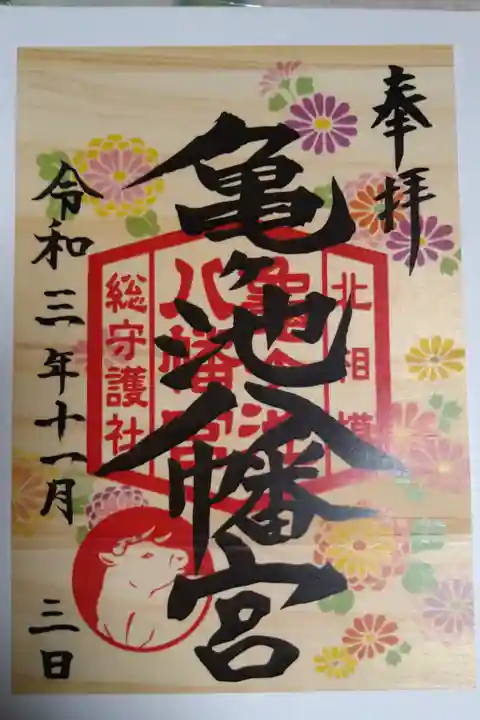 奉拝
亀ヶ池八幡宮
北相模
亀ヶ池
八幡宮
総守護社
令和三年十一月
三日